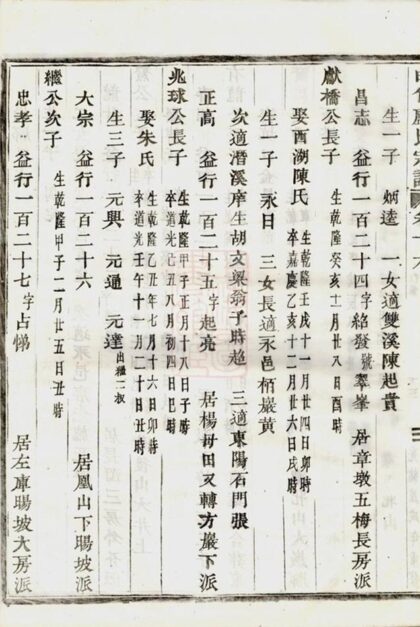 生一子 炳逵 一女適雙溪陳起貴
昌志 益行一百二十四字紹發號翠峯 居章墩五梅長房派
獻橋公長子 生乾隆癸亥十二月廿八日酉時
娶酉湖陳氏 生乾隆壬戌十一月廿四日卯時 卒嘉慶乙亥十二月廿六日戌時
生一子 永日 三女長適永邑栢巖黃
次適潛溪庠生胡文梁翁子時趨 三適東陽石門張
正高 益行一百二十五字起亮 居楊毋田又轉方巖下派
兆球公長子 生乾隆甲子正月十八日子時 卒道光己丑八月初四日巳時
娶朱氏 生乾隆乙丑年七月十六日卯時 卒道光壬午十一月二十日丑時
生三子 元興 元通 元達出繼二叔
大宗 益行一百二十六 居鳳山下暘坡派
繼公次子 生乾隆甲子二月廿五日丑時
忠孝 益行一百二十七字占悌 居左庫暘坡大房派